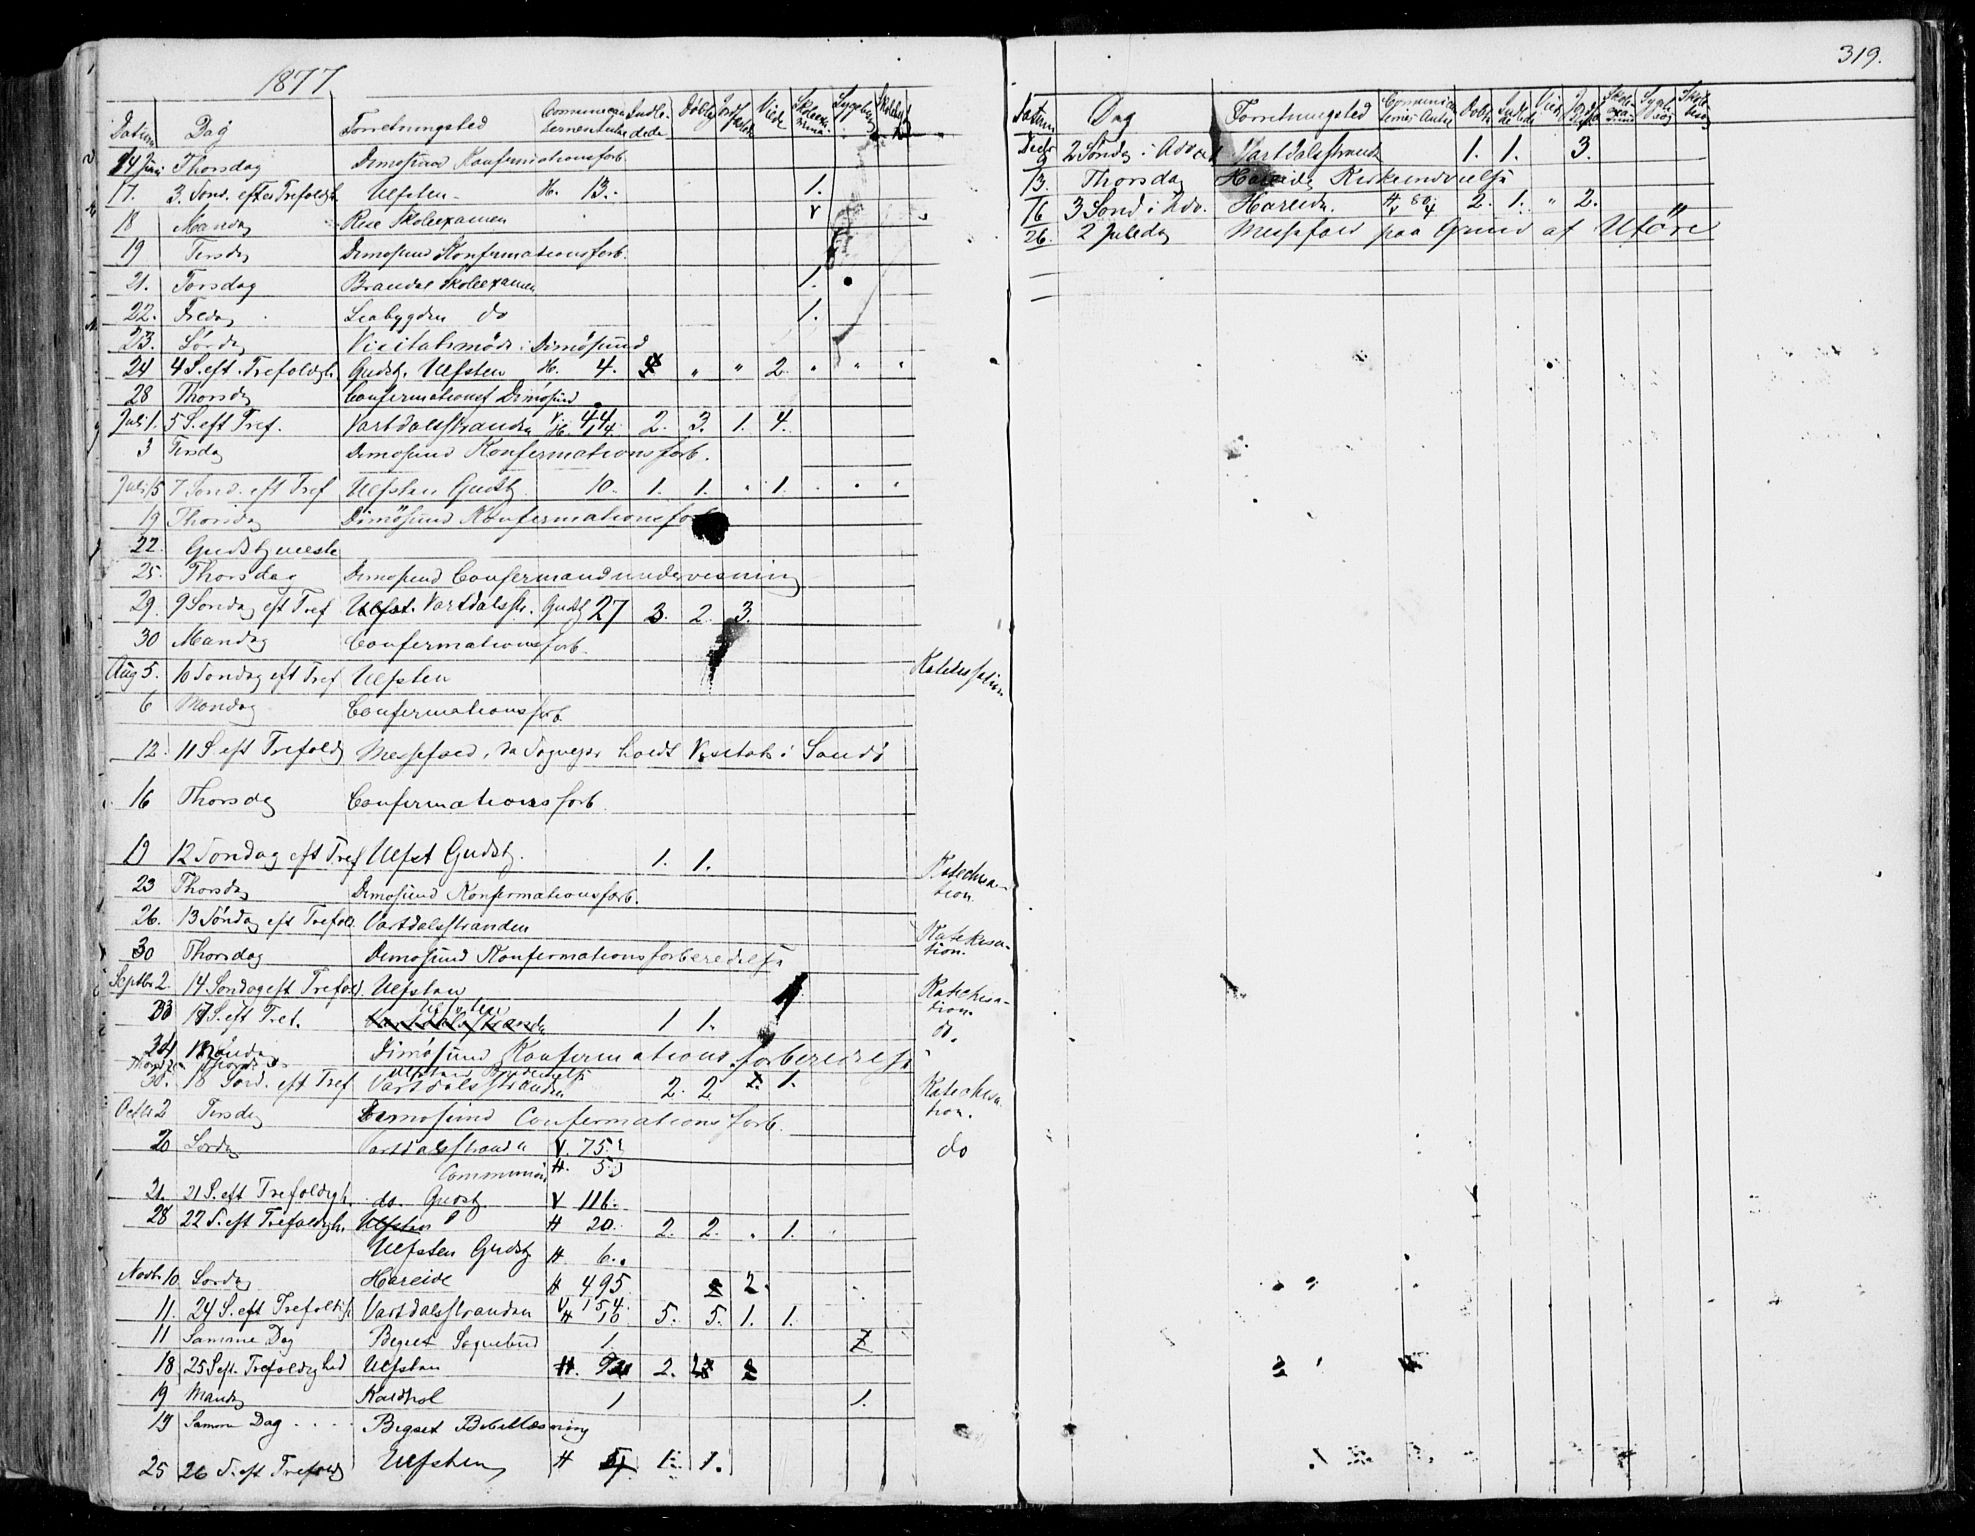 1877
Datum Dag Forretningsted Communican- ternes Antal Indle- dede Döbte Jord- fæstede Viede Skoleex- amina Sygebesög Skolebesög
14 Juni Thorsdag Dimösund Konfirmationsforb.
17. 3. Sönd. efter Trefoldigh. Ulfsten H. 13. 1.
18 Mandag Rise Skoleexamen
19 Tirsdag Dimösund Konfirmationsforb.
21. Torsdag Brandal Skoleexamen 1.
22. Fredag Liabygden do 1.
23. Lördag Visitatsmöde i Dimösund
24 4 S. eft. Trefoldigh. Gudstj. Ulfsten H. 4. " " 2. " " "
28 Thorsdag Confirmationsf Dimösund
Juli 1. 5 S. eft Tref. Vartdalsstranden V. 44 H. 14. 2. 3. 1. 4.
3 Tirsdag Dimösund Konfirmationsforb.
Juli 15 7 Sönd. eft Tref Ulfsten Gudstj. 10. 1. 1. . 1. . . .
19 Thorsdag Dimösund Konfirmationsforb
22. Gudstjeneste
25. Thorsdag Dimösund Confirmandundervisning
29. 9 Söndag eft Tref Ulfst. Vartdalsstr. Gudstj 27 3. 2. 3.
30 Mandag Confirmationsforb.
Aug 5. 10 Söndag eft Tref Ulfsten Katekesation
6 Mandag Confirmationsforb.
12. 11 S. eft Trefoldigh Messefald, da Sognepr holdt Visitats i Sandö
16 Thorsdag Confirmationsforb.
19 12 Söndag eft Tref Ulfst Gudstj. 1. 1. Katechisa-
tion.
23 Thorsdag Dimösund Konfirmationsforb.
26. 13 Söndag eft Trefold. Vartdalsstranden Katekesa-
tion.
30 Thorsdag Dimösund Konfirmationsforberedelse
Septbr 2. 14 Söndag eft Trefold. Ulfsten Katekisa-
tion.
23 17 S. eft Tref. Vartdalsstranden Ulfsten 1 1. do.
24 Mandag Dimösund Konfirmationsforberedelse
30. 18 Sönd. eft Tref Vartdalsstranden 2. 2 1. Katechisa-
tion.
Octbr 2 Tirsdag Dimösund Confirmationsforb.
20 Lördag Vartdalsstranden V. 75. do
Communion H. 5.
21. 21 S. eft Trefoldigh. do. Gudstj V 116.
28 22 S. eft Trefoldigh. Ulfsten H 20. 2. 2. . 1.
Ulfsten Gudstj H. 6.
Novbr. 10. Lördag Hareide H 495. 2.
11. 24 S. eft Trefoldigh. Vartdalsstranden V. 154. H 10 5. 5. 1. 1.
11 Samme Dag Begset Sognebud 1.
18 25 S eft. Trefoldighed Ulfsten H. 2.
19 Mandag Kaldhol 1 1.
19 Samme Dag . . . . Bigset Bibellæsning
25 26 S. eft Trefoldigh Ulfsten H 1. 1.
319.
Datum Dag Forretningsted Communican- ternes Antal Döbte Indle- dede Viede Jord- fæst Skole- exa- mina Syge- besög Skole- besög
Decbr 9 2 Söndag i Advent Vartdalsstranden 1. 1. 3.
13. Thorsdag Hareide Kirkeindvielse
16 3 Sönd i Adv. Hareide. H 80. V 4 2. 1. " 2.
26. 2 Juledag Messefald paa Grund af Uföre